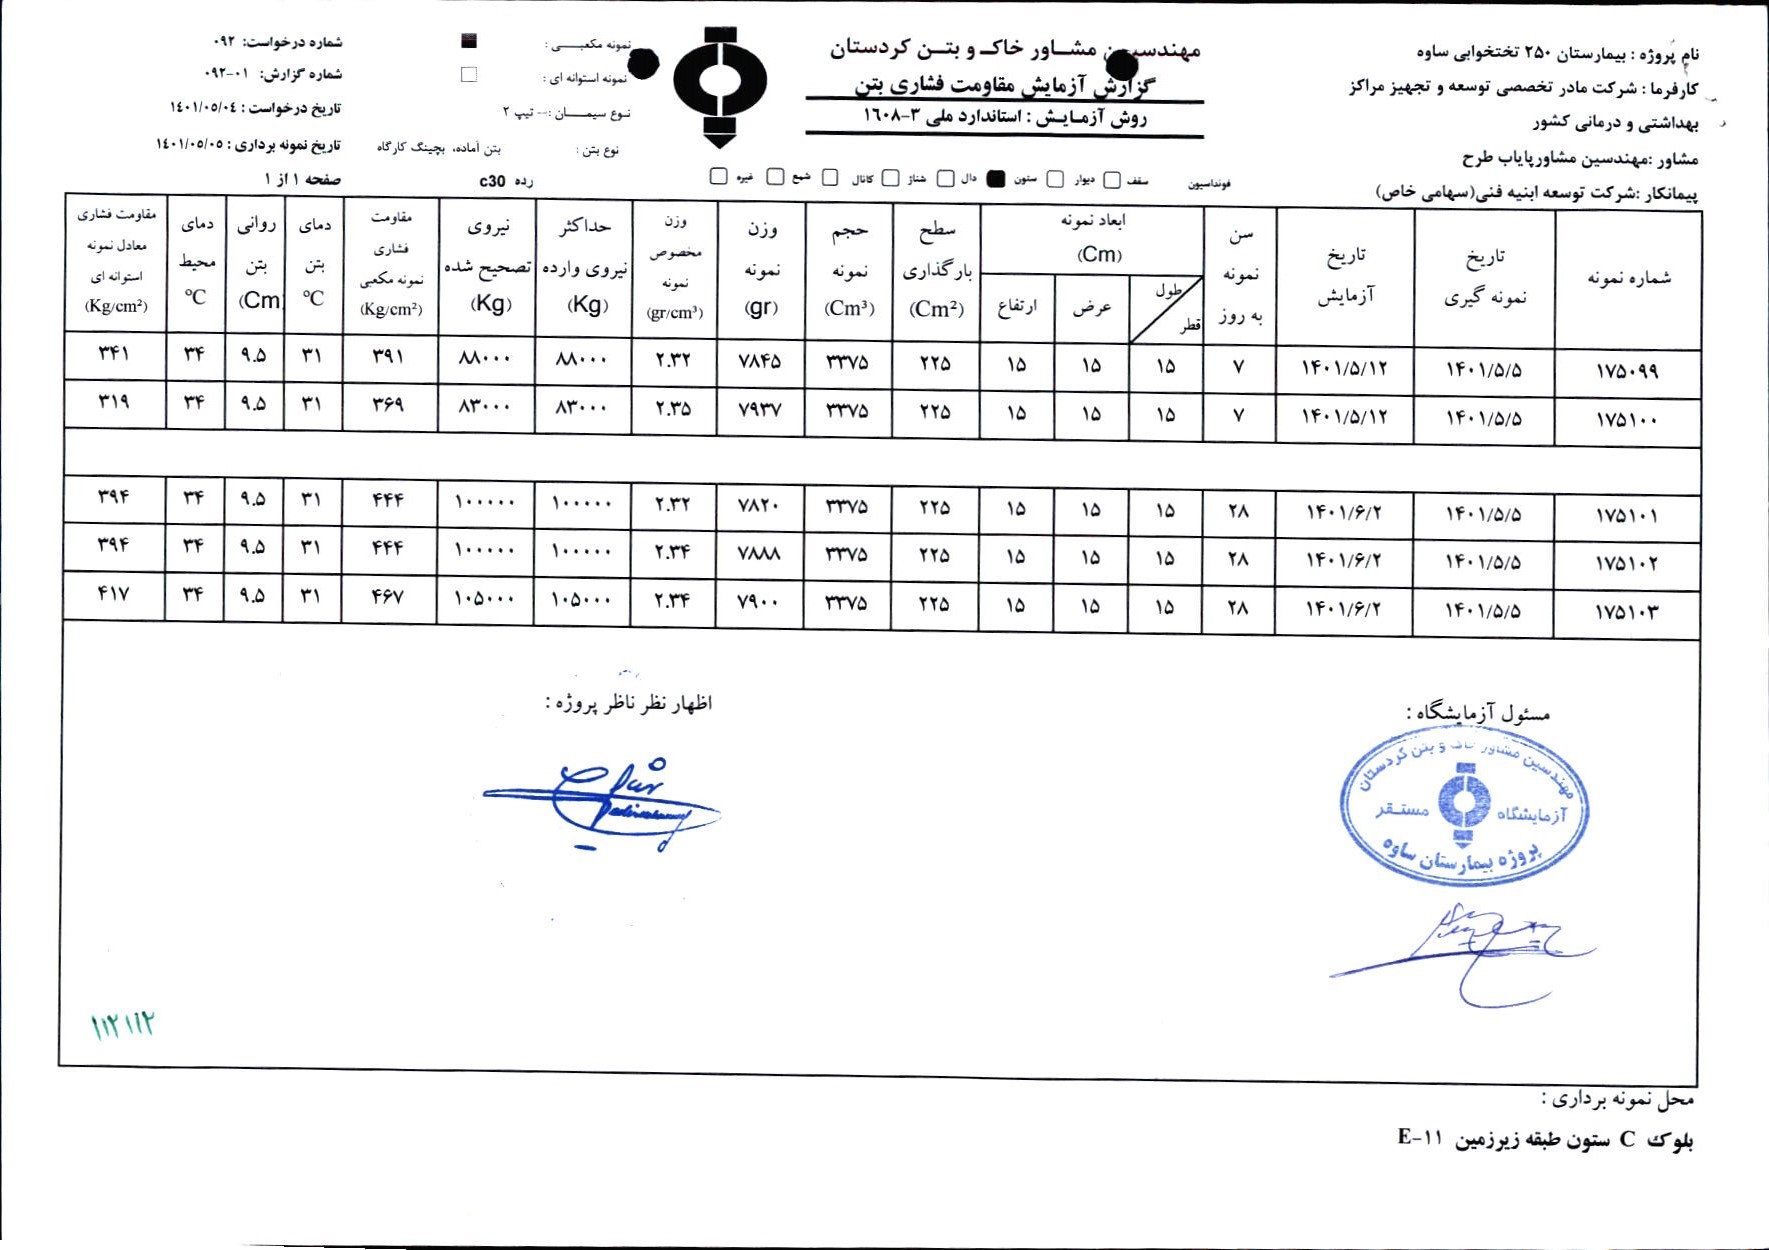 نام پروژه : بیمارستان ۲۵۰ تختخوابی ساوه
کارفرما : شرکت مادر تخصصی توسعه و تجهیز مراکز
بهداشتی و درمانی کشور
مشاور :مهندسین مشاورپایاب طرح
پیمانکار :شرکت توسعه ابنیه فنی(سهامی خاص)
مهندسین مشاور خاک و بتن کردستان
گزارش آزمایش مقاومت فشاری بتن
روش آزمایش : استاندارد ملی ۳-۱۶۰۸
نمونه مکعبی :
نمونه استوانه ای :
نوع سیمان :-- تیپ ۲
نوع بتن : بتن آماده، بچینگ کارگاه
رده c30
شماره درخواست: ۰۹۲
شماره گزارش: ۰۱-۰۹۲
تاریخ درخواست : ۱۴۰۱/۰۵/۰۴
تاریخ نمونه برداری : ۱۴۰۱/۰۵/۰۵
صفحه ۱ از ۱
فونداسیون سقف دیوار ستون دال شناژ کانال شمع غیره
شماره نمونه
تاریخ نمونه گیری
تاریخ آزمایش
سن نمونه به روز
ابعاد نمونه (Cm)
طول قطر
عرض
ارتفاع
سطح بارگذاری (Cm²)
حجم نمونه (Cm³)
وزن نمونه (gr)
وزن مخصوص نمونه (gr/cm³)
حداکثر نیروی وارده (Kg)
نیروی تصحیح شده (Kg)
مقاومت فشاری نمونه مکعبی (Kg/cm²)
دمای بتن °C
روانی بتن (Cm
دمای محیط °C
مقاومت فشاری معادل نمونه استوانه ای (Kg/cm²)
۱۷۵۰۹۹ ۱۴۰۱/۵/۵ ۱۴۰۱/۵/۱۲ ۷ ۱۵ ۱۵ ۱۵ ۲۲۵ ۳۳۷۵ ۷۸۴۵ ۲.۳۲ ۸۸۰۰۰ ۸۸۰۰۰ ۳۹۱ ۳۱ ۹.۵ ۳۴ ۳۴۱
۱۷۵۱۰۰ ۱۴۰۱/۵/۵ ۱۴۰۱/۵/۱۲ ۷ ۱۵ ۱۵ ۱۵ ۲۲۵ ۳۳۷۵ ۷۹۳۷ ۲.۳۵ ۸۳۰۰۰ ۸۳۰۰۰ ۳۶۹ ۳۱ ۹.۵ ۳۴ ۳۱۹
۱۷۵۱۰۱ ۱۴۰۱/۵/۵ ۱۴۰۱/۶/۲ ۲۸ ۱۵ ۱۵ ۱۵ ۲۲۵ ۳۳۷۵ ۷۸۲۰ ۲.۳۲ ۱۰۰۰۰۰ ۱۰۰۰۰۰ ۴۴۴ ۳۱ ۹.۵ ۳۴ ۳۹۴
۱۷۵۱۰۲ ۱۴۰۱/۵/۵ ۱۴۰۱/۶/۲ ۲۸ ۱۵ ۱۵ ۱۵ ۲۲۵ ۳۳۷۵ ۷۸۸۸ ۲.۳۴ ۱۰۰۰۰۰ ۱۰۰۰۰۰ ۴۴۴ ۳۱ ۹.۵ ۳۴ ۳۹۴
۱۷۵۱۰۳ ۱۴۰۱/۵/۵ ۱۴۰۱/۶/۲ ۲۸ ۱۵ ۱۵ ۱۵ ۲۲۵ ۳۳۷۵ ۷۹۰۰ ۲.۳۴ ۱۰۵۰۰۰ ۱۰۵۰۰۰ ۴۶۷ ۳۱ ۹.۵ ۳۴ ۴۱۷
مسئول آزمایشگاه :
اظهار نظر ناظر پروژه :
مهندسین مشاور خاک و بتن کردستان
آزمایشگاه مستقر
پروژه بیمارستان ساوه
محل نمونه برداری :
بلوک C ستون طبقه زیرزمین E-۱۱